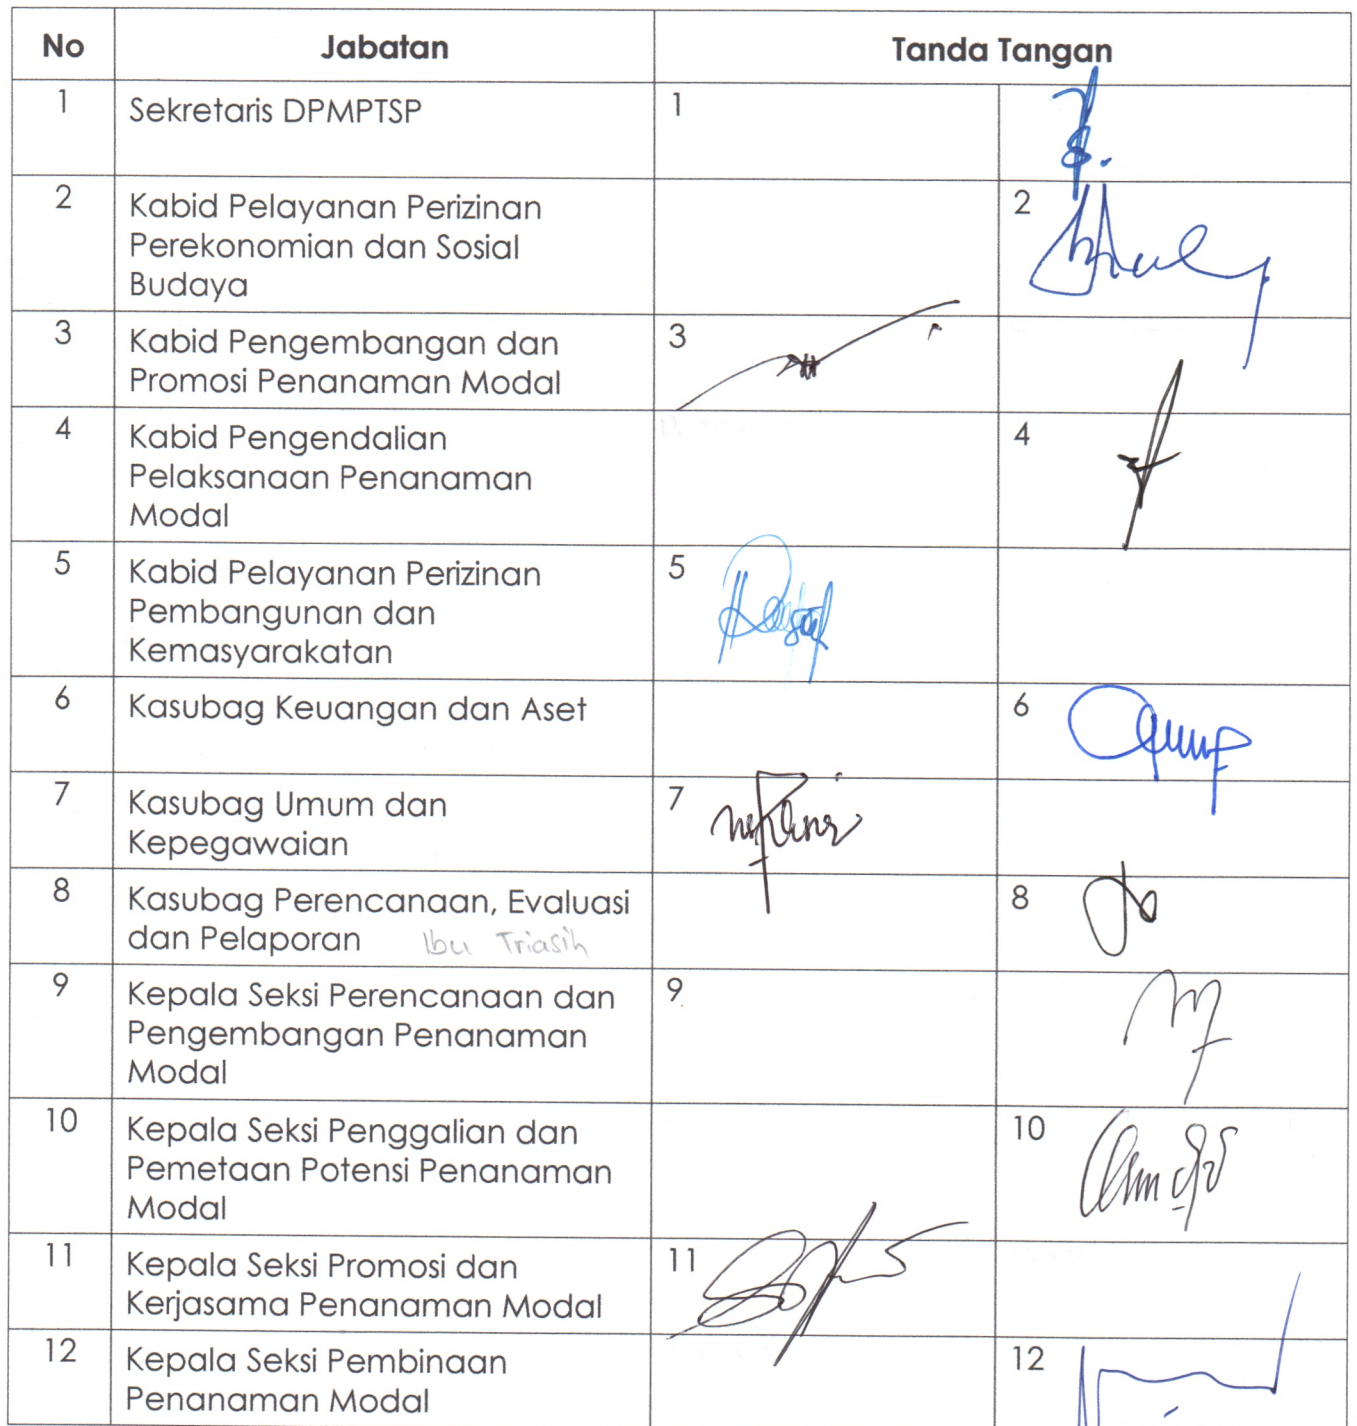 No Jabatan Tanda Tangan
1 Sekretaris DPMPTSP 1
2 Kabid Pelayanan Perizinan 2
Perekonomian dan Sosial
Budaya
3 Kabid Pengembangan dan 3
Promosi Penanaman Modal
4 Kabid Pengendalian 4
Pelaksanaan Penanaman
Modal
5 Kabid Pelayanan Perizinan 5
Pembangunan dan
Kemasyarakatan
6 Kasubag Keuangan dan Aset 6
7 Kasubag Umum dan 7
Kepegawaian
8 Kasubag Perencanaan, Evaluasi 8
dan Pelaporan Ibu Triasih
9 Kepala Seksi Perencanaan dan 9
Pengembangan Penanaman
Modal
10 Kepala Seksi Penggalian dan 10
Pemetaan Potensi Penanaman
Modal
11 Kepala Seksi Promosi dan 11
Kerjasama Penanaman Modal
12 Kepala Seksi Pembinaan 12
Penanaman Modal